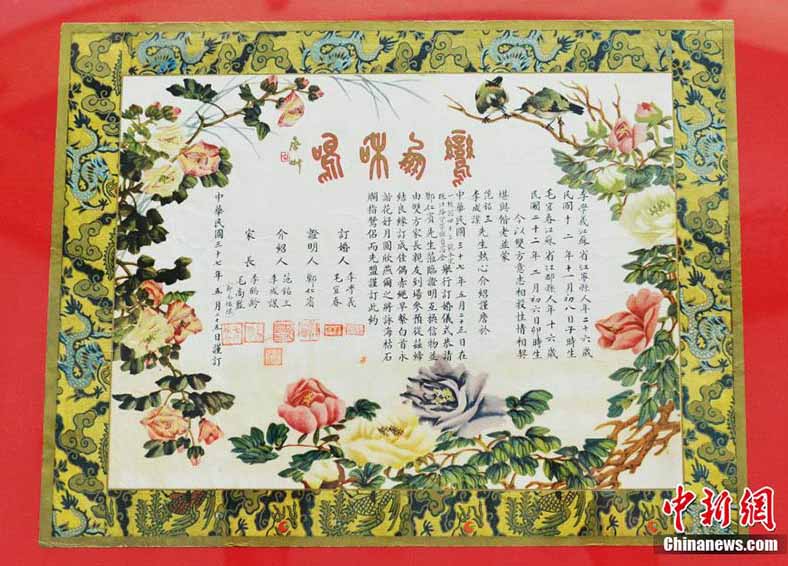 鸞鳳和鳴
李學義江蘇省江寧縣人年二十六歲
民國十二年十一月初八日子時生
毛宜春江蘇省江都縣人年十六歲
民國二十二年二月初六日卯時生
今以雙方意志相投性情相契
堪與偕老並蒙
范銘三
李成謀先生熱心介紹謹詹於
中華民國三十七年五月二十三日在
舉行訂婚儀式恭請
鄭林賓先生蒞臨證明互換信物並
由雙方家長親友到場參預從茲締
結良緣訂成佳偶赤繩早繫白首永
諧花好月圓欣燕爾之將詠海枯石
爛指鴛侶而先盟謹訂此約
訂婚人 李學義
毛宜春
證明人 鄭林賓
介紹人 范銘三
李成謀
家長 李鶴齡
毛高
中華民國三十七年五月二十三日謹訂
中新網
Chinanews.com